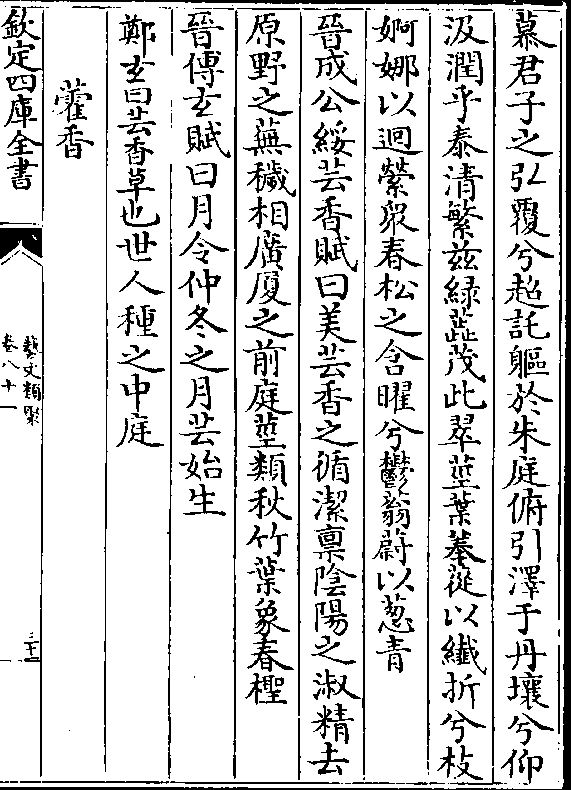 慕君子之弘覆兮超託軀於朱庭俯引澤于丹壤兮仰
汲潤乎泰清繁茲綠蘂茂此翠莖葉萋蓯以纖折兮枝
婀娜以迴縈象春松之含曜兮鬱蓊蔚以葱青
晉成公綏芸香賦曰美芸香之循潔禀陰陽之淑精去
原野之蕪穢相廣厦之前庭莖類秋竹葉象春檉
晉傅玄賦曰月令仲冬之月芸始生
鄭玄曰芸香草也世人種之中庭
藿香
欽定四庫全書
藝文類聚
卷八十一